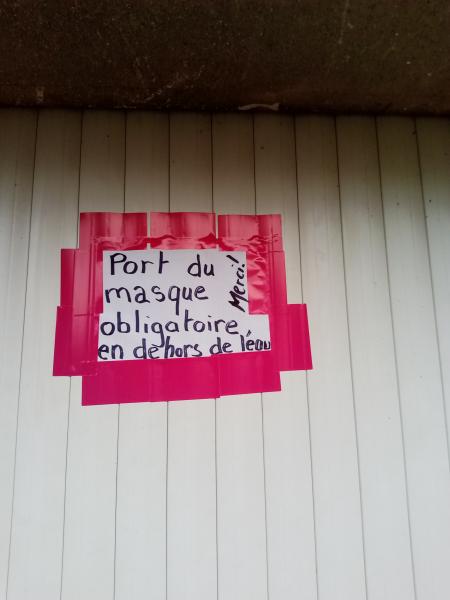 Port du
masque
obligatoire
en dehors de l'eau
Merci!